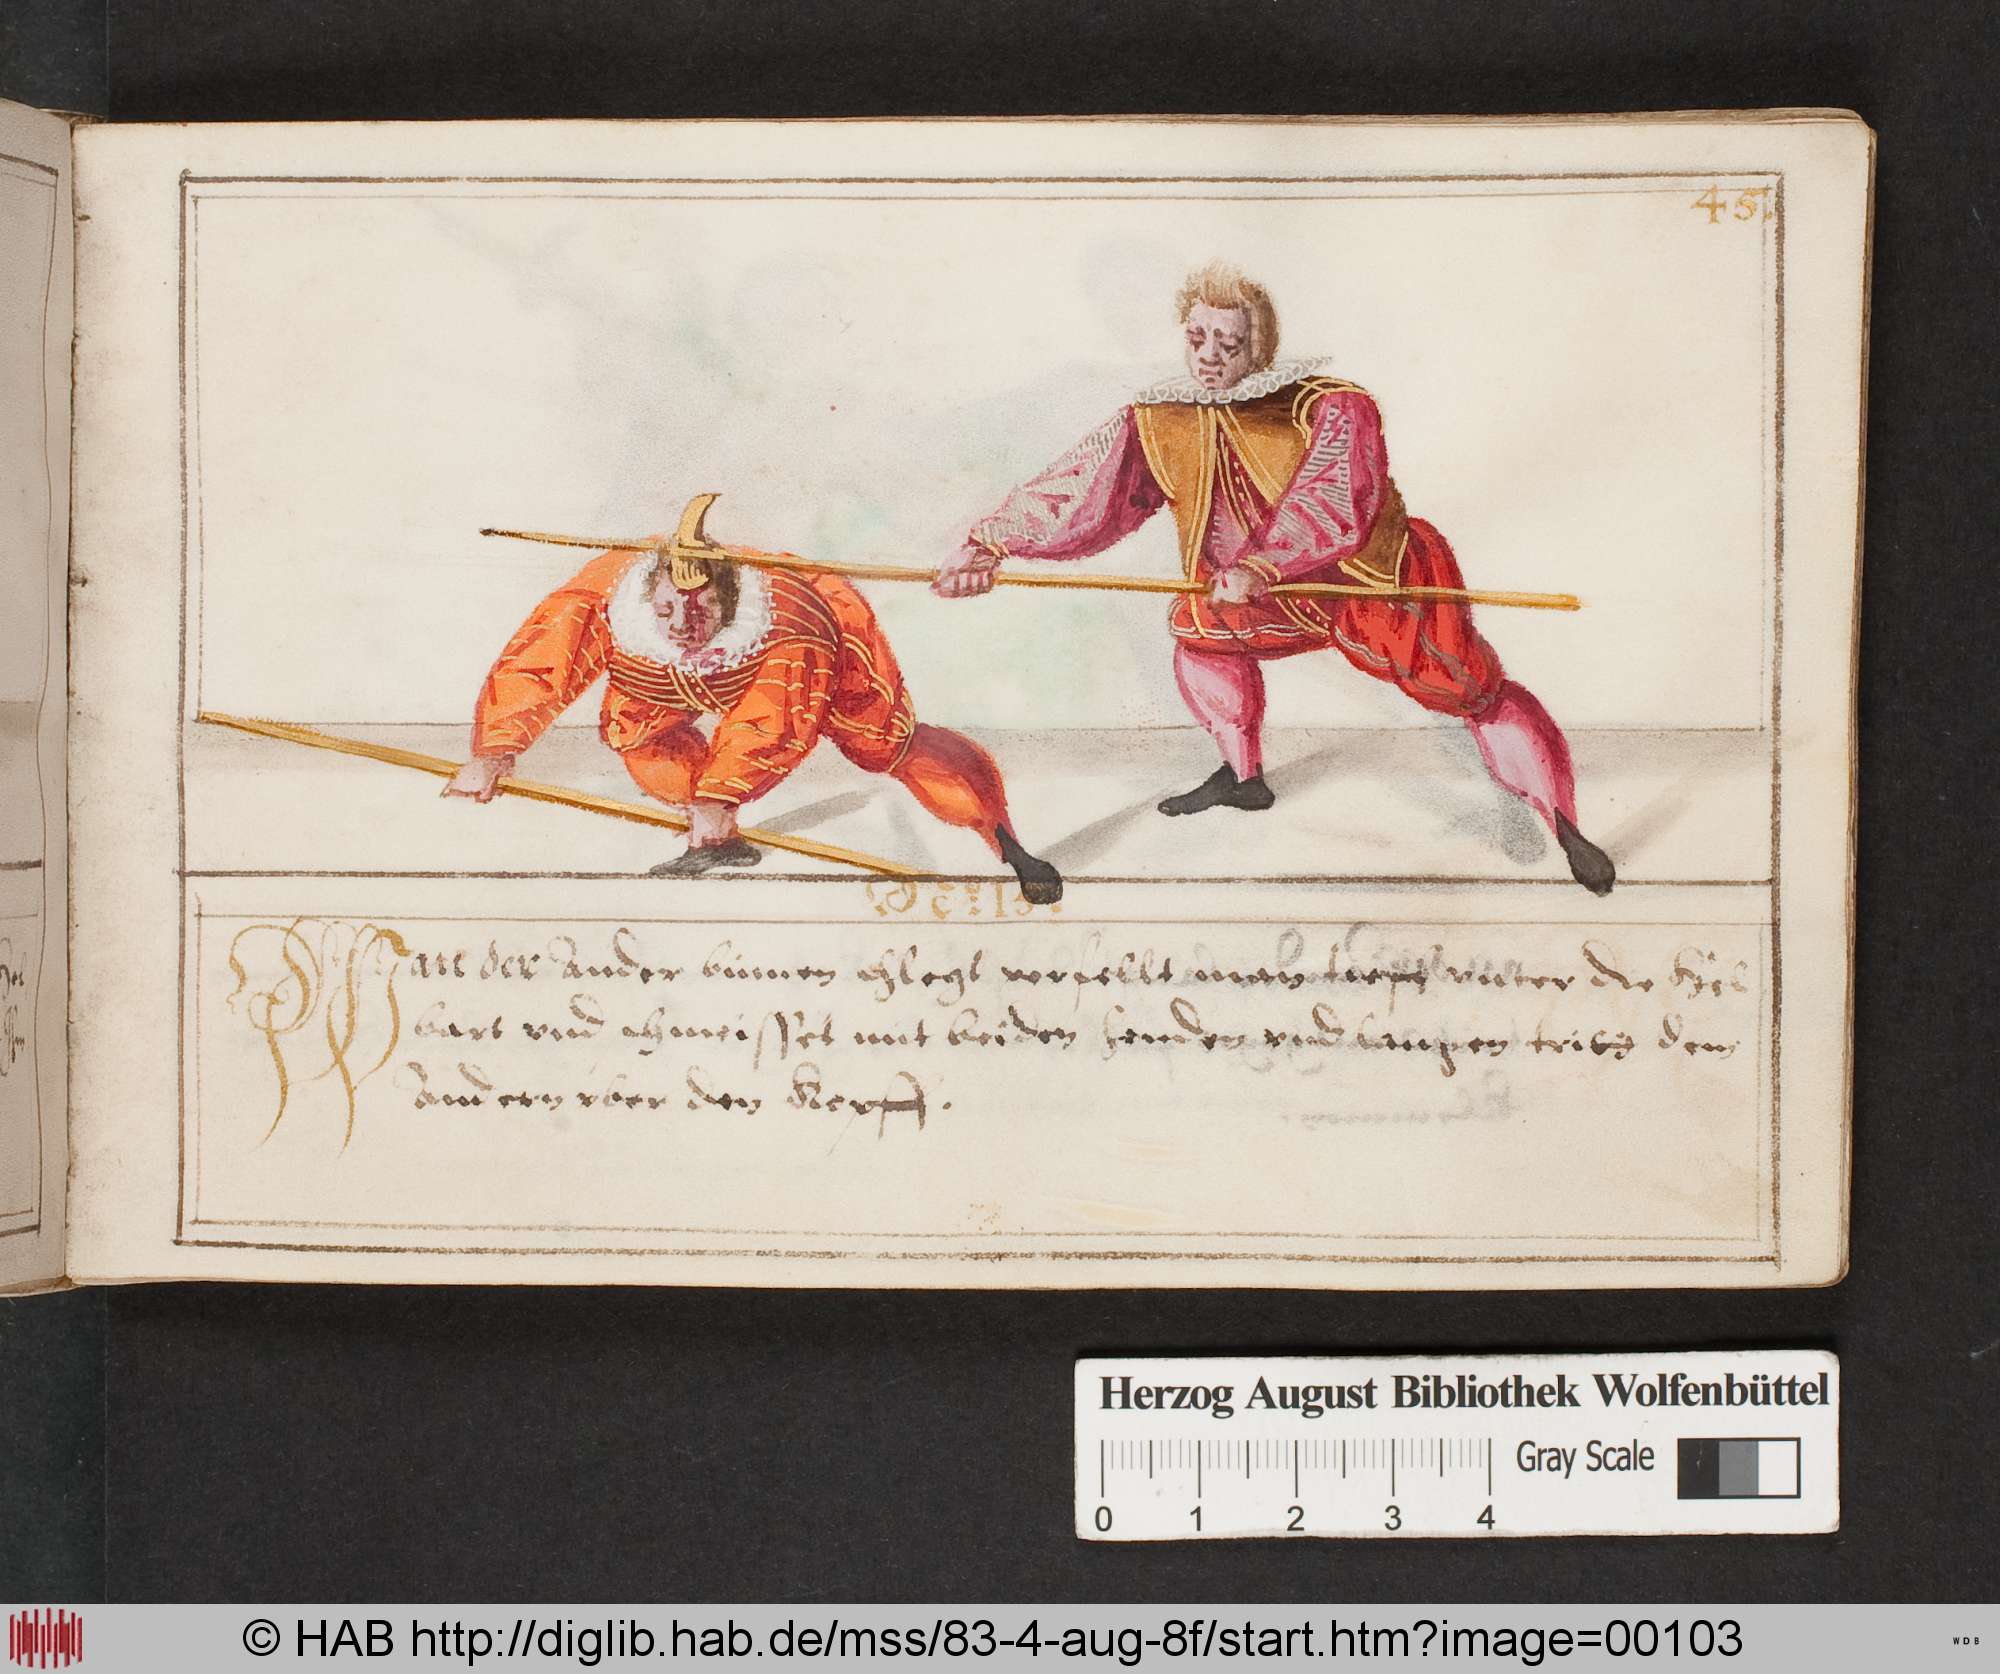 45.
Wan der Ander binnen schlegt verfellt man tieff vnter die Hel
bart vnd schmeisset mit beiden henden vnd langen trith dem
Andern vber den Kopff.
Herzog August Bibliothek Wolfenbüttel
Gray Scale
0 1 2 3 4
© HAB http://diglib.hab.de/mss/83-4-aug-8f/start.htm?image=00103
WDB